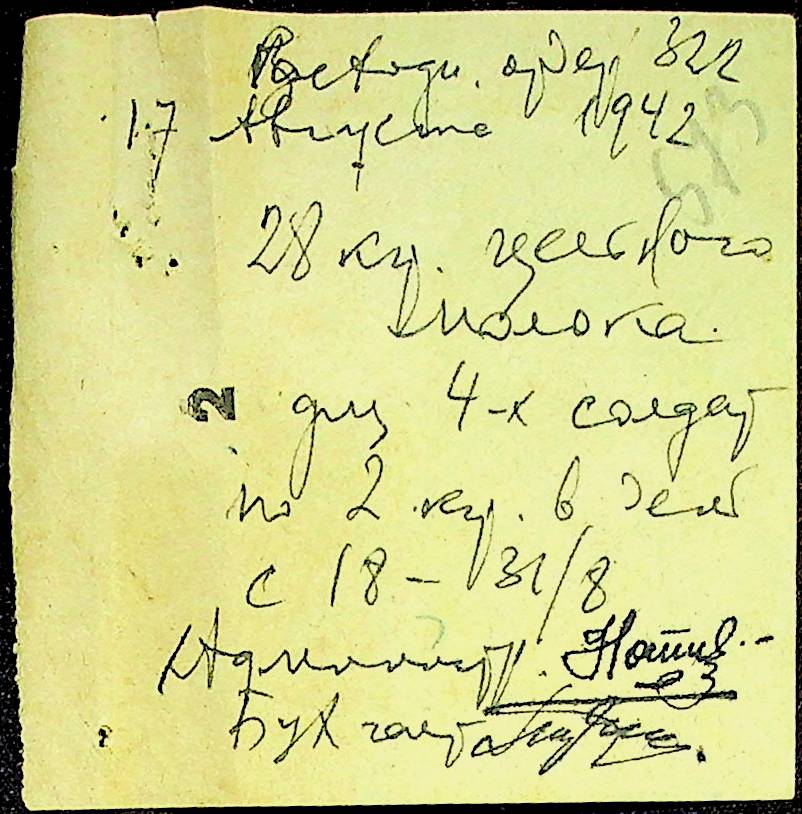 Расходн. ордер 322
17 Августа 1942
513
28 кг. цельного
молока.
2
для 4-х солдат
по 2 кг. в день
с 18 – 31/8
Администр.
Бухгалт